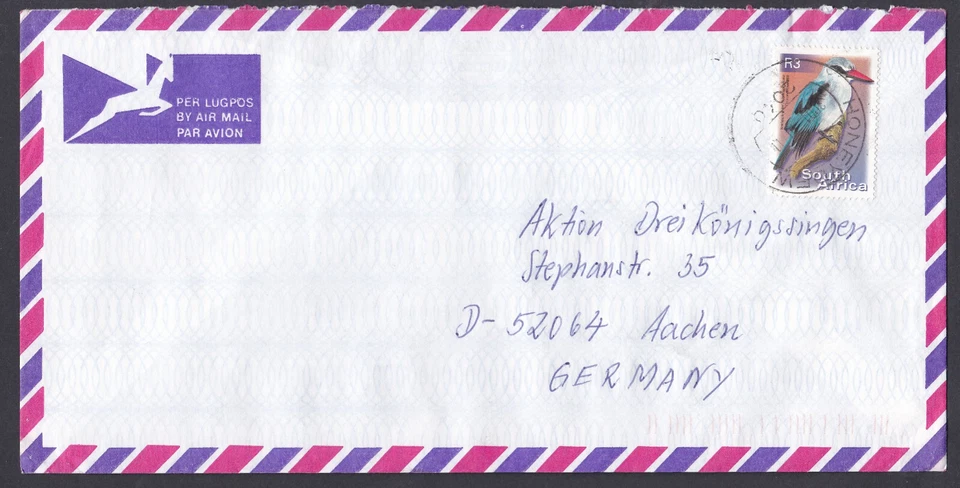 PER LUGPOS
BY AIR MAIL
PAR AVION
R3
South
Africa
Aktion Dreikönigssingen
Stephanstr. 35
D-52064 Aachen
GERMANY